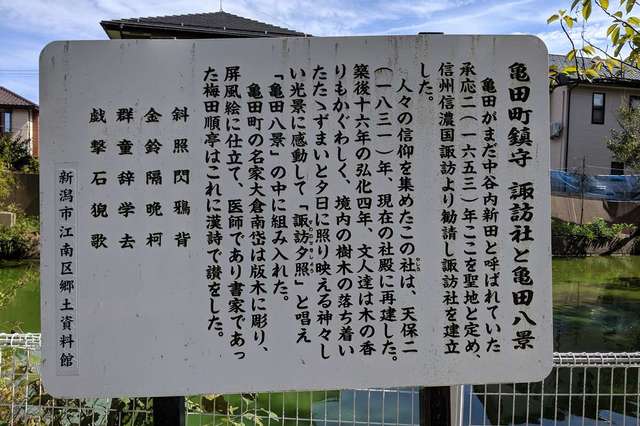 亀田町鎮守 諏訪社と亀田八景
亀田がまだ中谷内新田と呼ばれていた
承応二(一六五三)年ここを聖地と定め、
信州信濃国諏訪より勧請し諏訪社を建立
した。
人々の信仰を集めたこの社は、天保二
(一八三一)年、現在の社殿に再建した。
築後十六年の弘化四年、文人達は木の香
りもかぐわしく、境内の樹木の落ち着い
たたゝずまいと夕日に照り映える神々し
い光景に感動して「諏訪夕照」と唱え
「亀田八景」の中に組み入れた。
亀田町の名家大倉南岱は版木に彫り、
屏風絵に仕立て、医師であり書家であっ
た梅田順亭はこれに漢詩で讃をした。
斜照閃鴉背
金鈴隔晩柯
群童辞学去
戯撃石猊歌
新潟市江南区郷土資料館